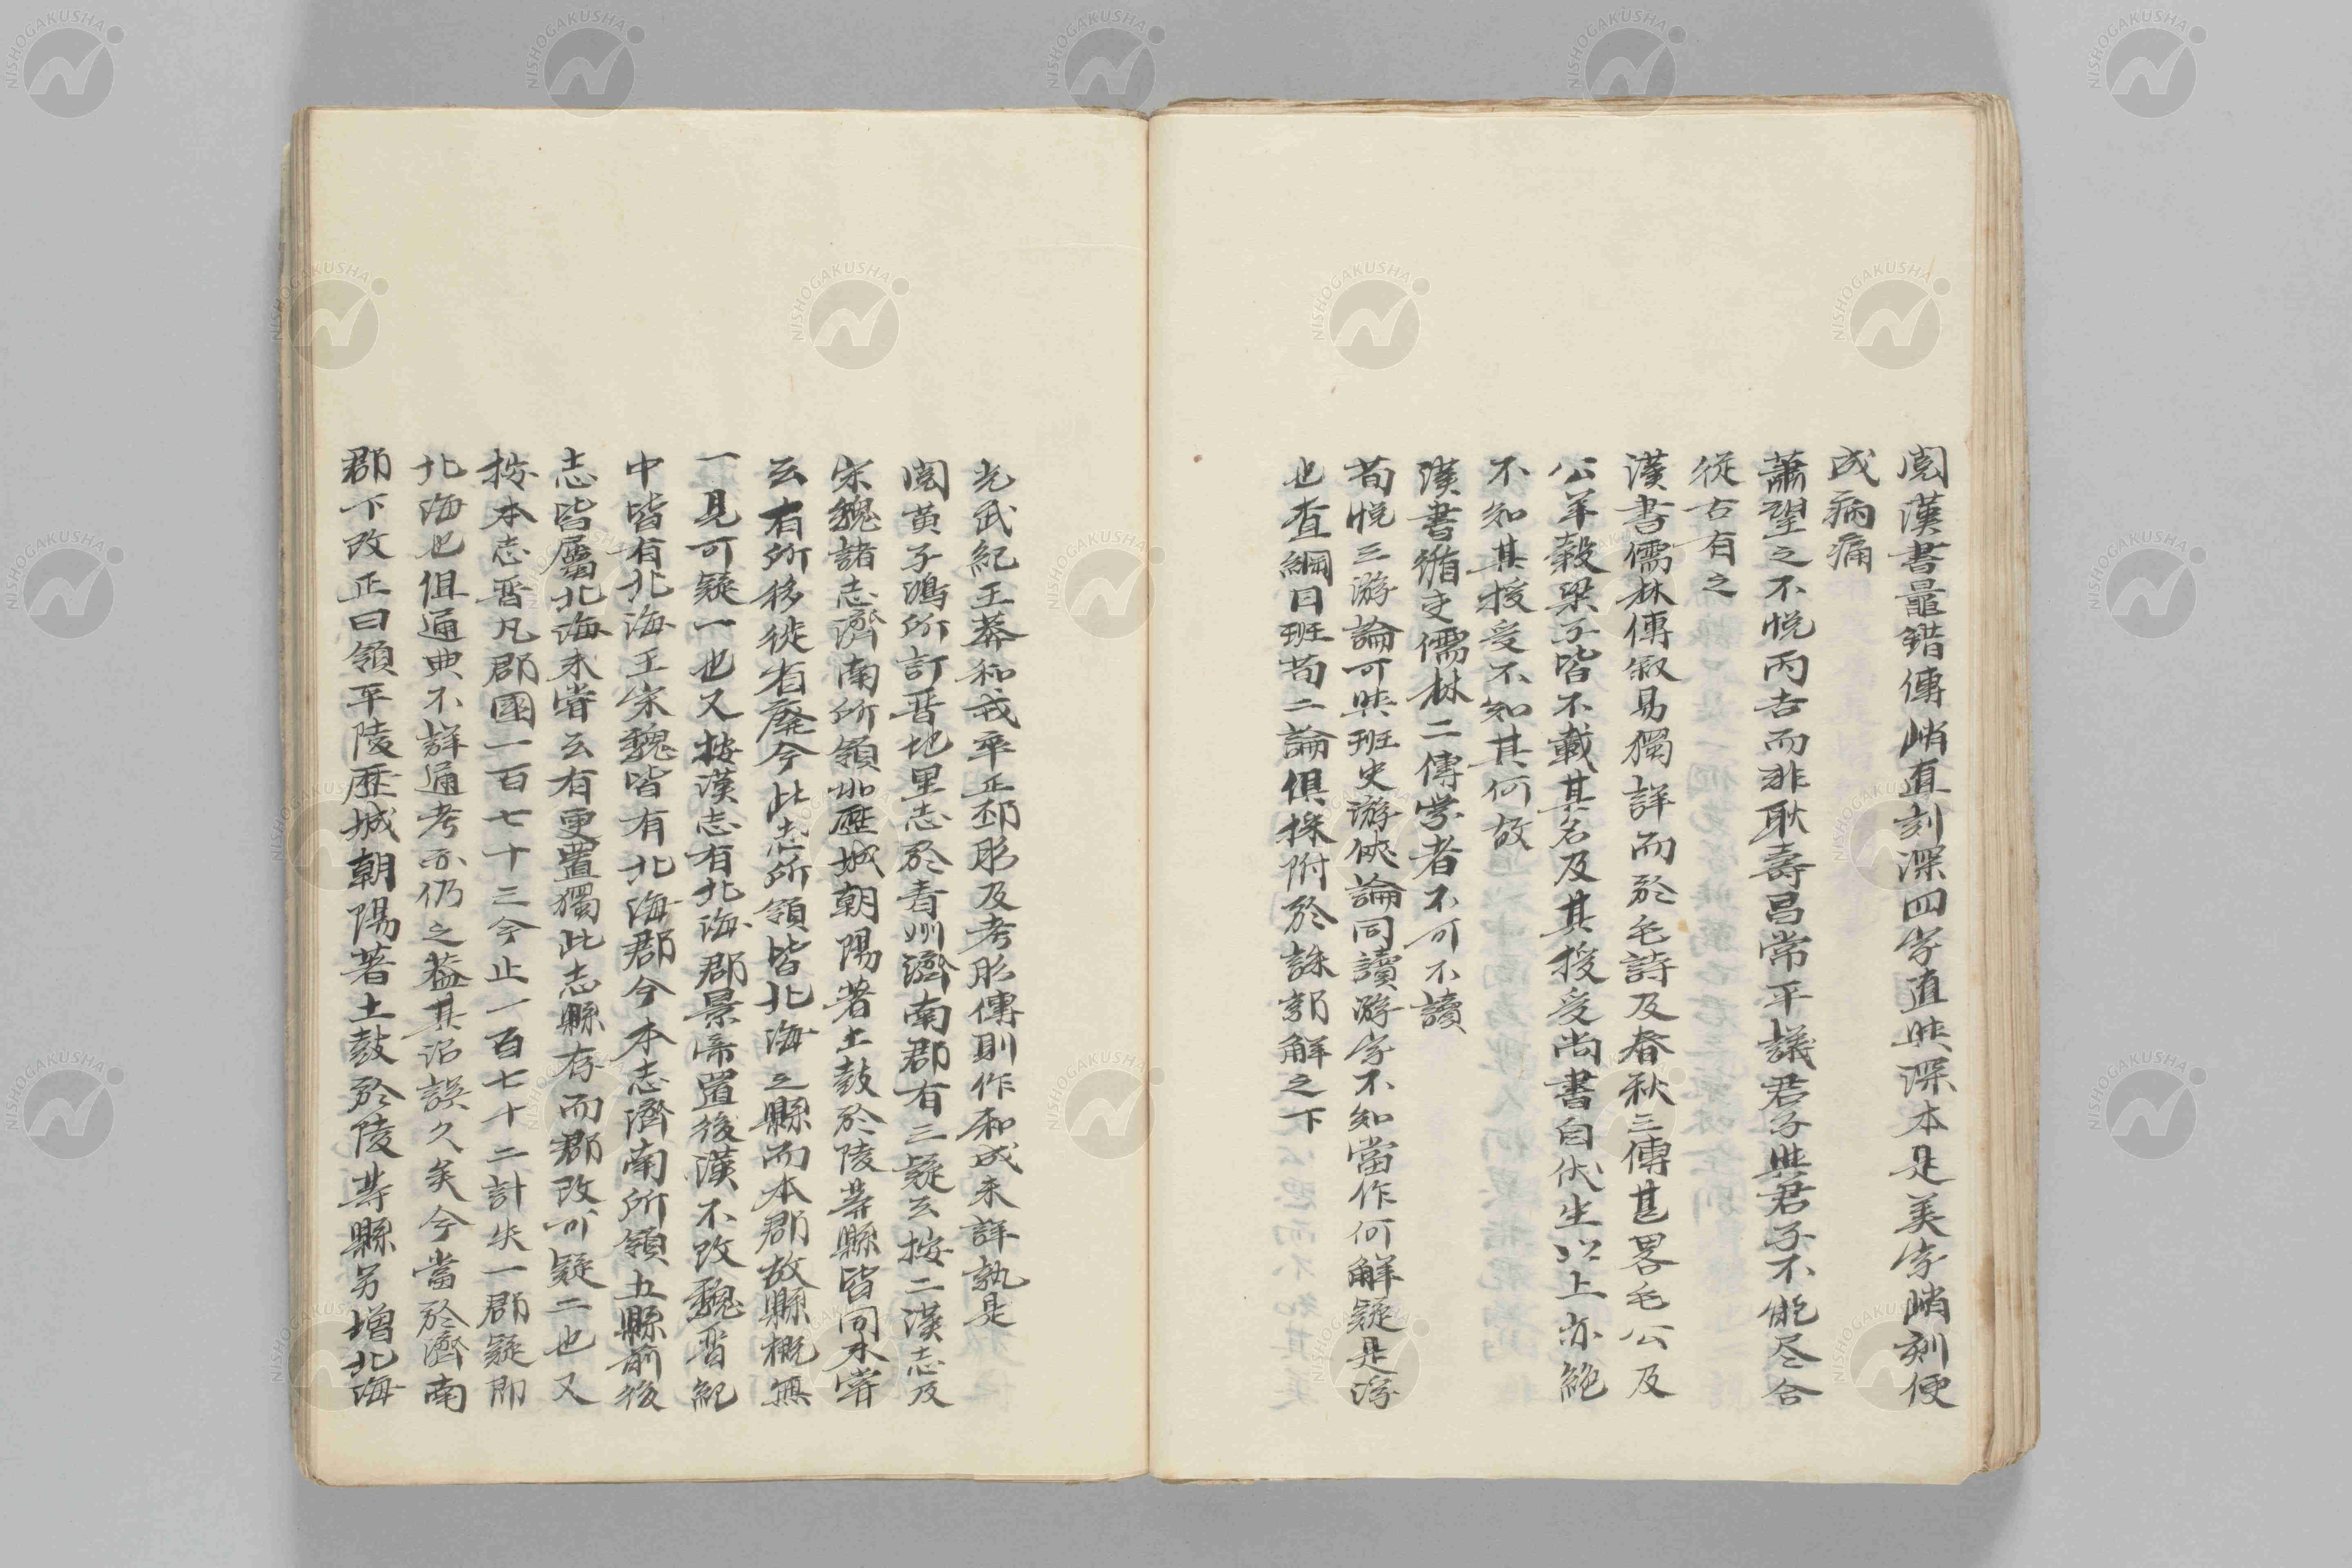 閲漢書鼂錯傳峭直刻深四字直與深本是美字峭刻便
成病痛
蕭望之不悦丙吉而非耿壽昌常平議君子與君子不能尽合
從古有之
漢書儒林傳叙易獨詳而於毛詩及春秋三傳甚畧毛公及
公羊穀梁子皆不載其名及其授受尚書自伏生以上亦絶
不知其授受不知其何故
漢書循吏儒林二傳學者不可不讀
荀悦三游論可與班史游俠論同讀游字不知當作何解疑是浮
也查綱目班荀二論俱採附於誅郭解之下
光武紀王莽和戎卒正邳彤及考彤傳則作和成未詳孰是
閲黄子鴻所訂晋地里志於青州濟南郡有三疑云按二漢志及
宋魏諸志濟南所領如歷城朝陽著土鼓於陵等縣皆同未嘗
云有所移徙省廢今此志所領皆北海之縣而本郡故縣概無
一見可疑一也又按漢志有北海郡景帝置後漢不改魏晋紀
中皆有北海王宋魏皆有北海郡今本志濟南所領五縣前後
志皆屬北海未嘗云有更置獨此志縣存而郡改可疑二也又
按本志晋凡郡國一百七十三今止一百七十二計失一郡疑即
北海也但通典不詳通考亦仍之蓋其沿誤久矣今當於濟南
郡下改正曰領平陵歷城朝陽著土鼓於陵等縣另增北海
NISHOGAKUSHA